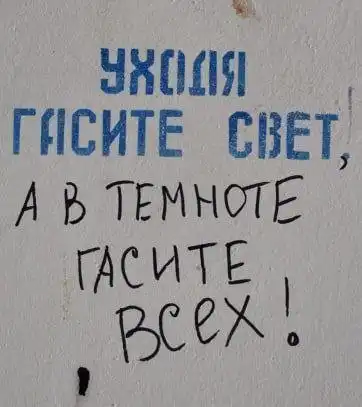 УХОДЯ
ГАСИТЕ СВЕТ,
А В ТЕМНОТЕ
ГАСИТЕ
ВСЕХ!